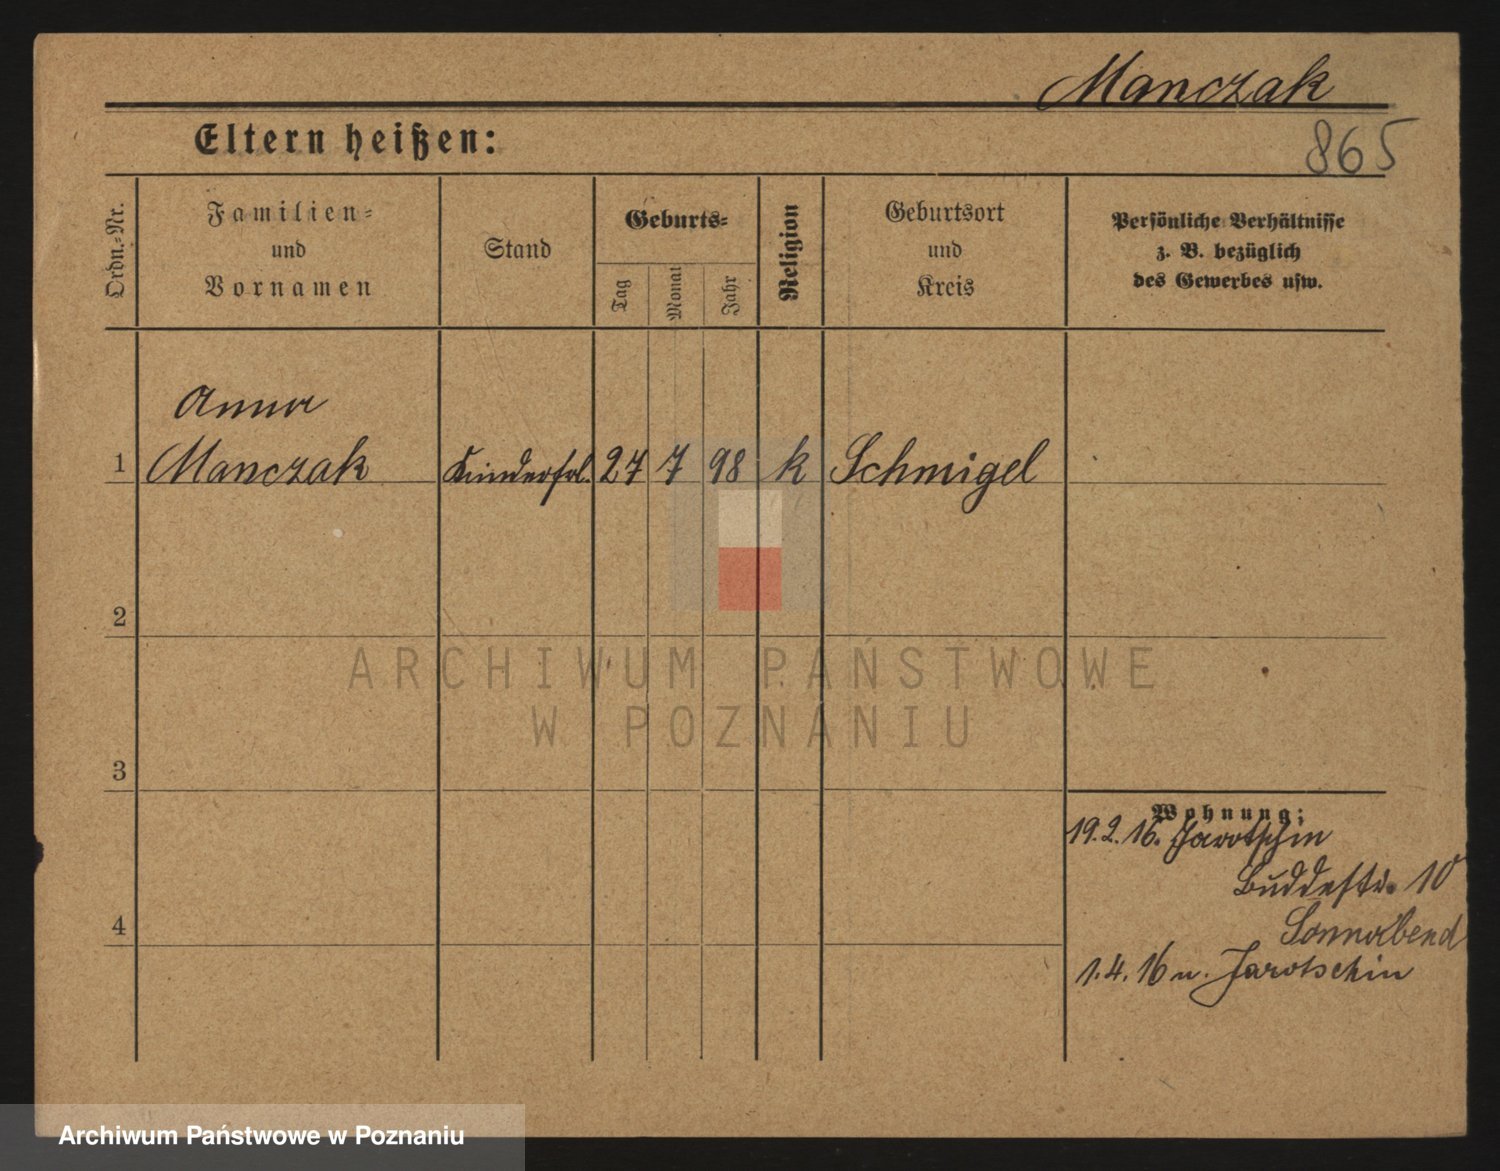 Manczak
Eltern heißen:
865
Ordn.=Nr.
Familien=
und
Vornamen
Stand
Geburts=
Tag
Monat
Jahr
Religion
Geburtsort
und
Kreis
Persönliche Verhältnisse
z. B. bezüglich
des Gewerbes usw.
Anna
1 Manczak Kinderfrl. 27 7 98 k Schmigel
2
3
4
Wohnung:
19.2.16. Jarotschin
Buddestr. 10
Sonnabend
1.4.16 n. Jarotschin
ARCHIWUM PAŃSTWOWE
W POZNANIU
Archiwum Państwowe w Poznaniu